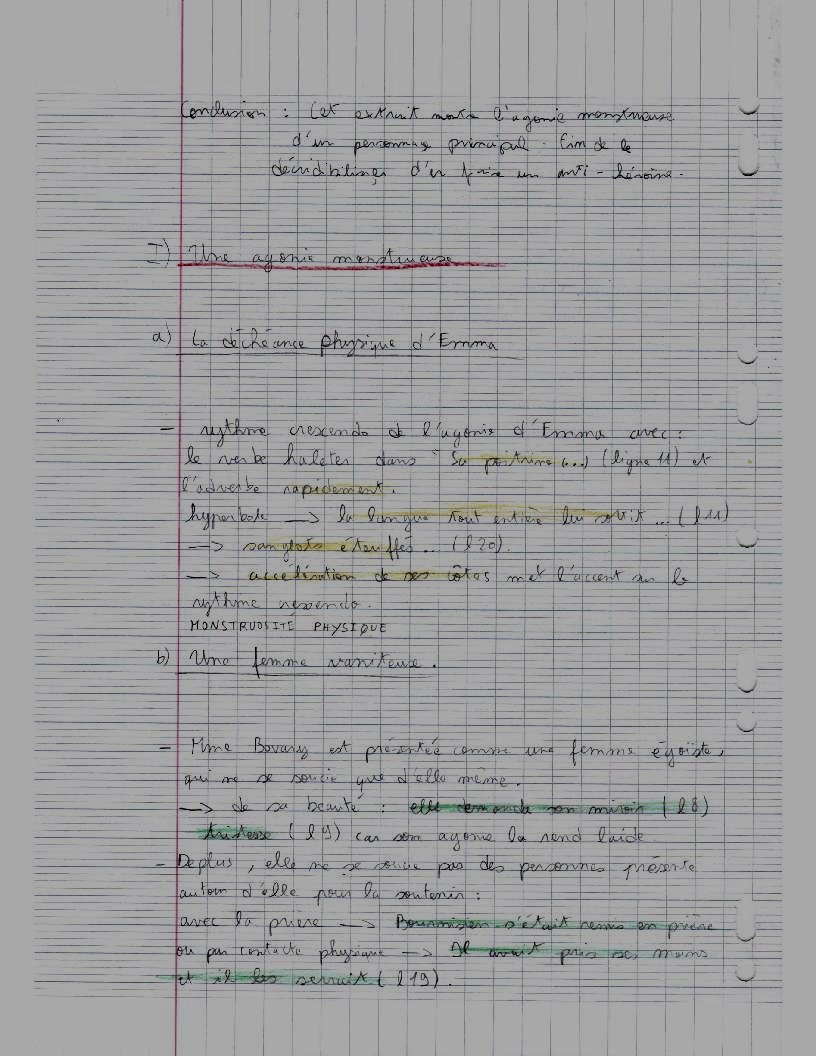 Conclusion : Cet extrait montre l'agonie monstrueuse
d'un personnage principal. Fin de le
d'un anti-héroïne.
I) Une agonie monstrueuse
a) La déchéance physique d'Emma
- rythme crescendo de l'agonie d'Emma avec :
le verbe haleter dans "Sa poitrine (...) (ligne 11) et
l'adverbe rapidement.
hyperbole —> la langue tout entière lui sortit... (l 11)
—> sanglots étouffés... (l 20).
—> accélération de ses côtes met l'accent sur le
rythme crescendo.
MONSTRUOSITÉ PHYSIQUE
b) Une femme vaniteuse.
- Mme Bovary est présentée comme une femme égoïste,
qui ne se soucie que d'elle même.
—> de sa beauté : elle demanda son miroir (l 8)
tristesse (l 9) car son agonie la rend laide
- De plus, elle ne se soucie pas des personnes présente
autour d'elle pour la soutenir :
avec la prière —> Bournisien s'était remis en prière
ou par contacte physique —> Il avait pris ses mains
et il les serrait (l 19).